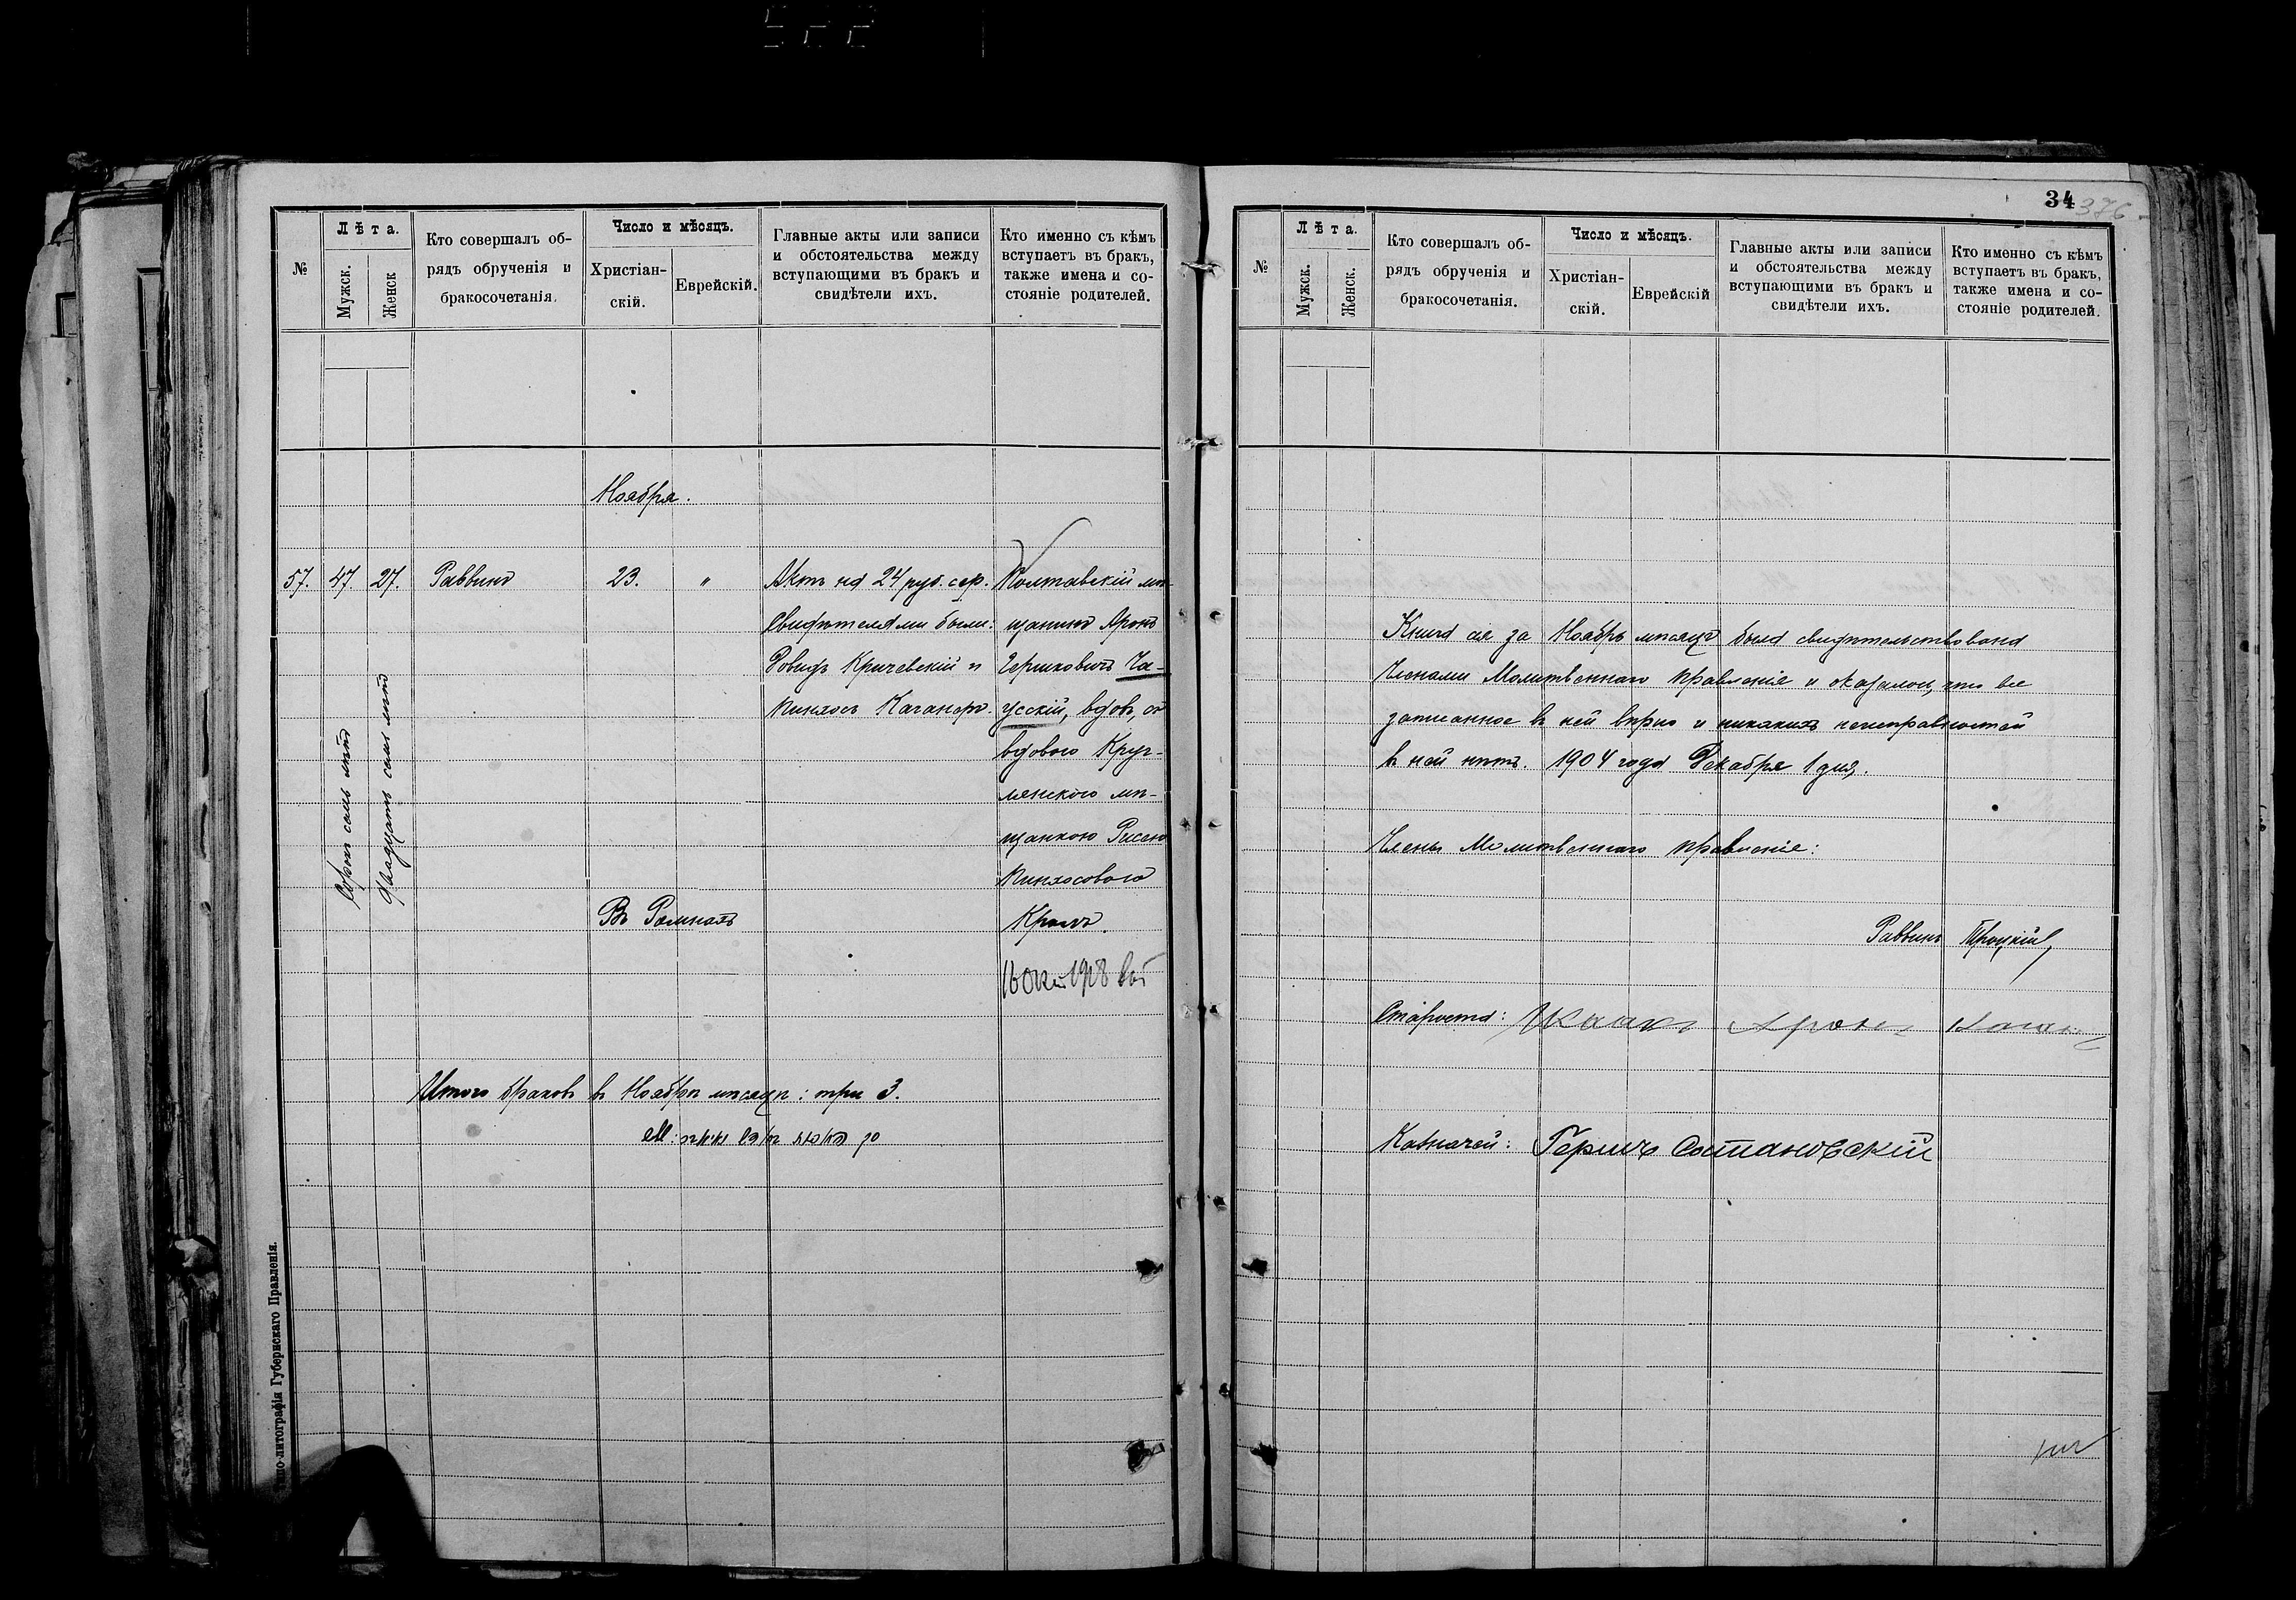 №
Лѣта.
Мужск.
Женск
Кто совершалъ об-
рядъ обрученія и
бракосочетанія.
Число и мѣсяцъ.
Христіан-
скій.
Еврейскій.
Главные акты или записи
и обстоятельства между
вступающими въ бракъ и
свидѣтели ихъ.
Кто именно съ кѣмъ
вступаетъ въ бракъ,
также имена и со-
стояніе родителей.
Ноября.
57.
47.
27.
Сорокъ семь лѣтъ
Двадцать семь лѣтъ
Раввинъ
23.
"
Въ Ромнахъ
Актъ на 24 руб. сер.
Свидѣтелями были:
Довидъ Кричевскій и
Пинхосъ Каганеръ.
Полтавскій мѣ-
щанинъ Аронъ
Гершковичъ Ча-
усскій, вдов, съ
вдовою Круг-
лянскою мѣ-
щанкою Рисею
Пинхосовою
Кролъ.
1918
Итого браковъ въ Ноябрѣ мѣсяцѣ: три 3.
типо-литографія Губернскаго Правленія.
34
376
№
Лѣта.
Мужск.
Женск.
Кто совершалъ об-
рядъ обрученія и
бракосочетанія.
Число и мѣсяцъ.
Христіан-
скій.
Еврейскій
Главные акты или записи
и обстоятельства между
вступающими въ бракъ и
свидѣтели ихъ.
Кто именно съ кѣмъ
вступаетъ въ бракъ,
также имена и со-
стояніе родителей.
Книга сія за Ноябрь мѣсяцъ была свидѣтельствована
Членами Молитвеннаго Правленія и оказалось, что все
записанное въ ней вѣрно и никакихъ неисправностей
въ ней нѣтъ. 1904 года Декабря 1 дня.
Члены Молитвеннаго Правленія:
Раввинъ Троцкій
Староста: Арон Коган
Казначей: Гершъ